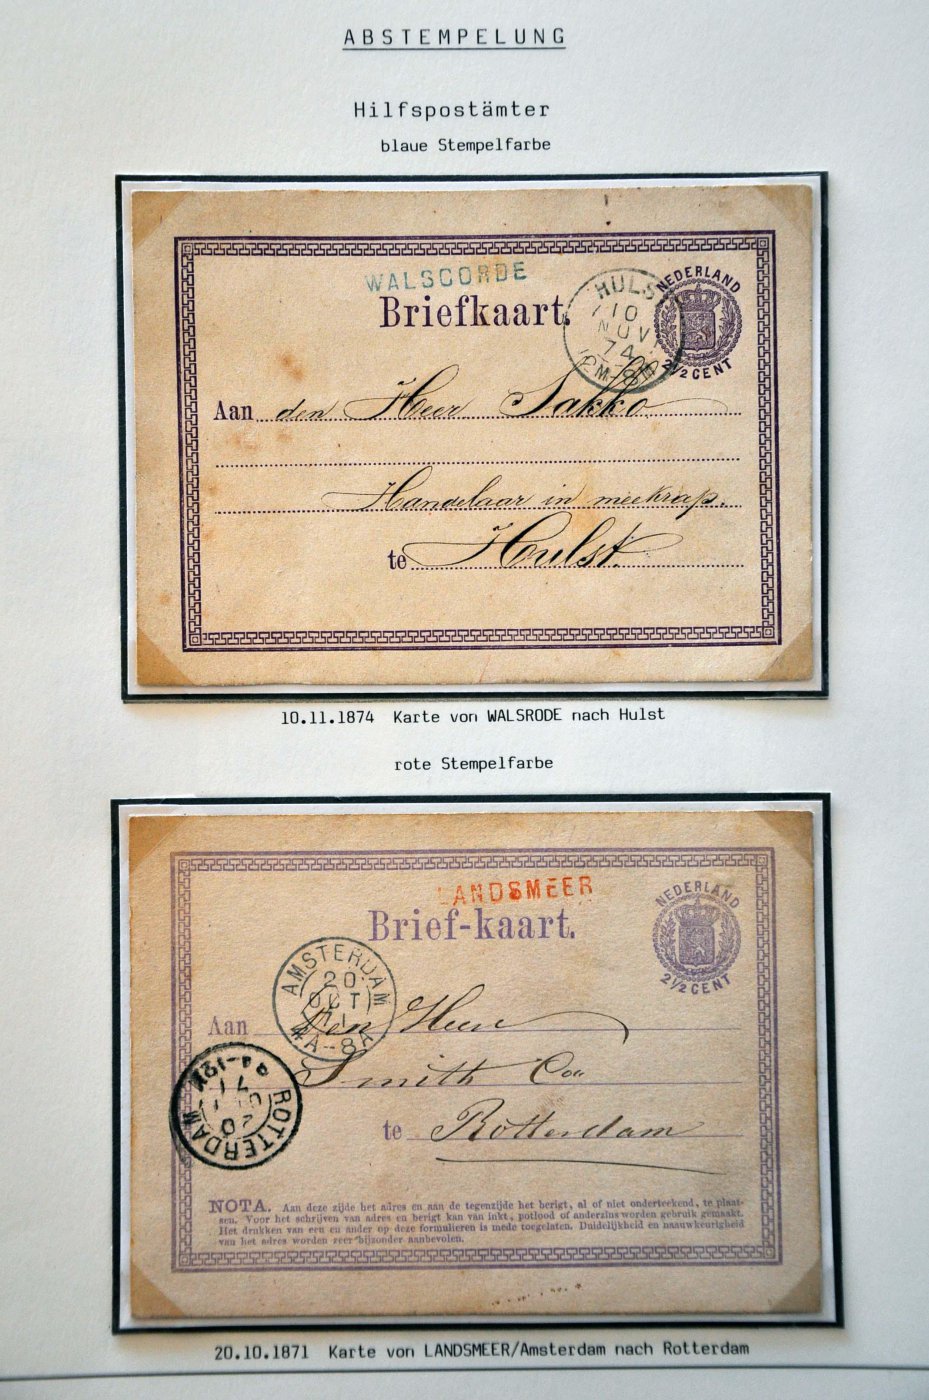 ABSTEMPELUNG
Hilfspostämter
blaue Stempelfarbe
WALSOORDE
Briefkaart.
HULST
10
NOV
74
NEDERLAND
2½ CENT
Aan den Heer Sakko
Handelaar in meekrap.
te Hulst.
10.11.1874 Karte von WALSRODE nach Hulst
rote Stempelfarbe
LANDSMEER
Brief-kaart.
NEDERLAND
2½ CENT
AMSTERDAM
20
OCT
71
4A-8A
Aan Den Heere
Smith & Co
te Rotterdam
ROTTERDAM
20
71
NOTA. Aan deze zijde het adres en aan de tegenzijde het berigt, al of niet onderteekend, te plaat-
sen. Voor het schrijven van adres en berigt kan van inkt, potlood of anderzins worden gebruik gemaakt.
Het drukken van een en ander op deze formulieren is mede toegelaten. Duidelijkheid en naauwkeurigheid
van het adres worden zeer bijzonder aanbevolen.
20.10.1871 Karte von LANDSMEER/Amsterdam nach Rotterdam